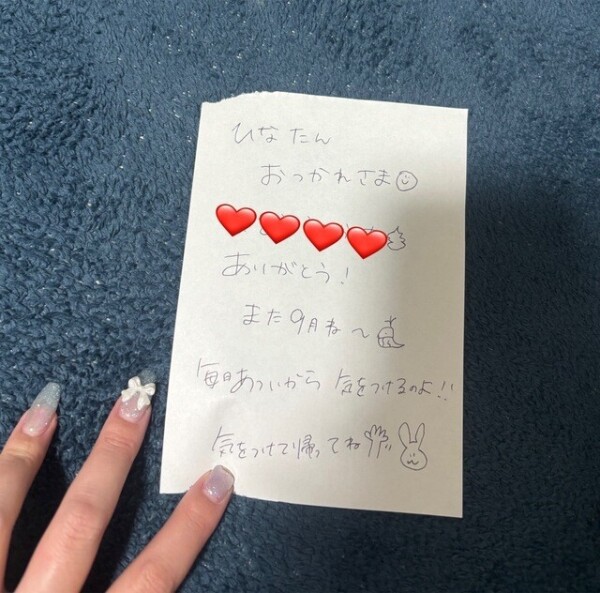 ひなたん
おつかれさま
ありがとう!
また9月ね〜
毎日あついから 気をつけるのよ!!
気をつけて帰ってね